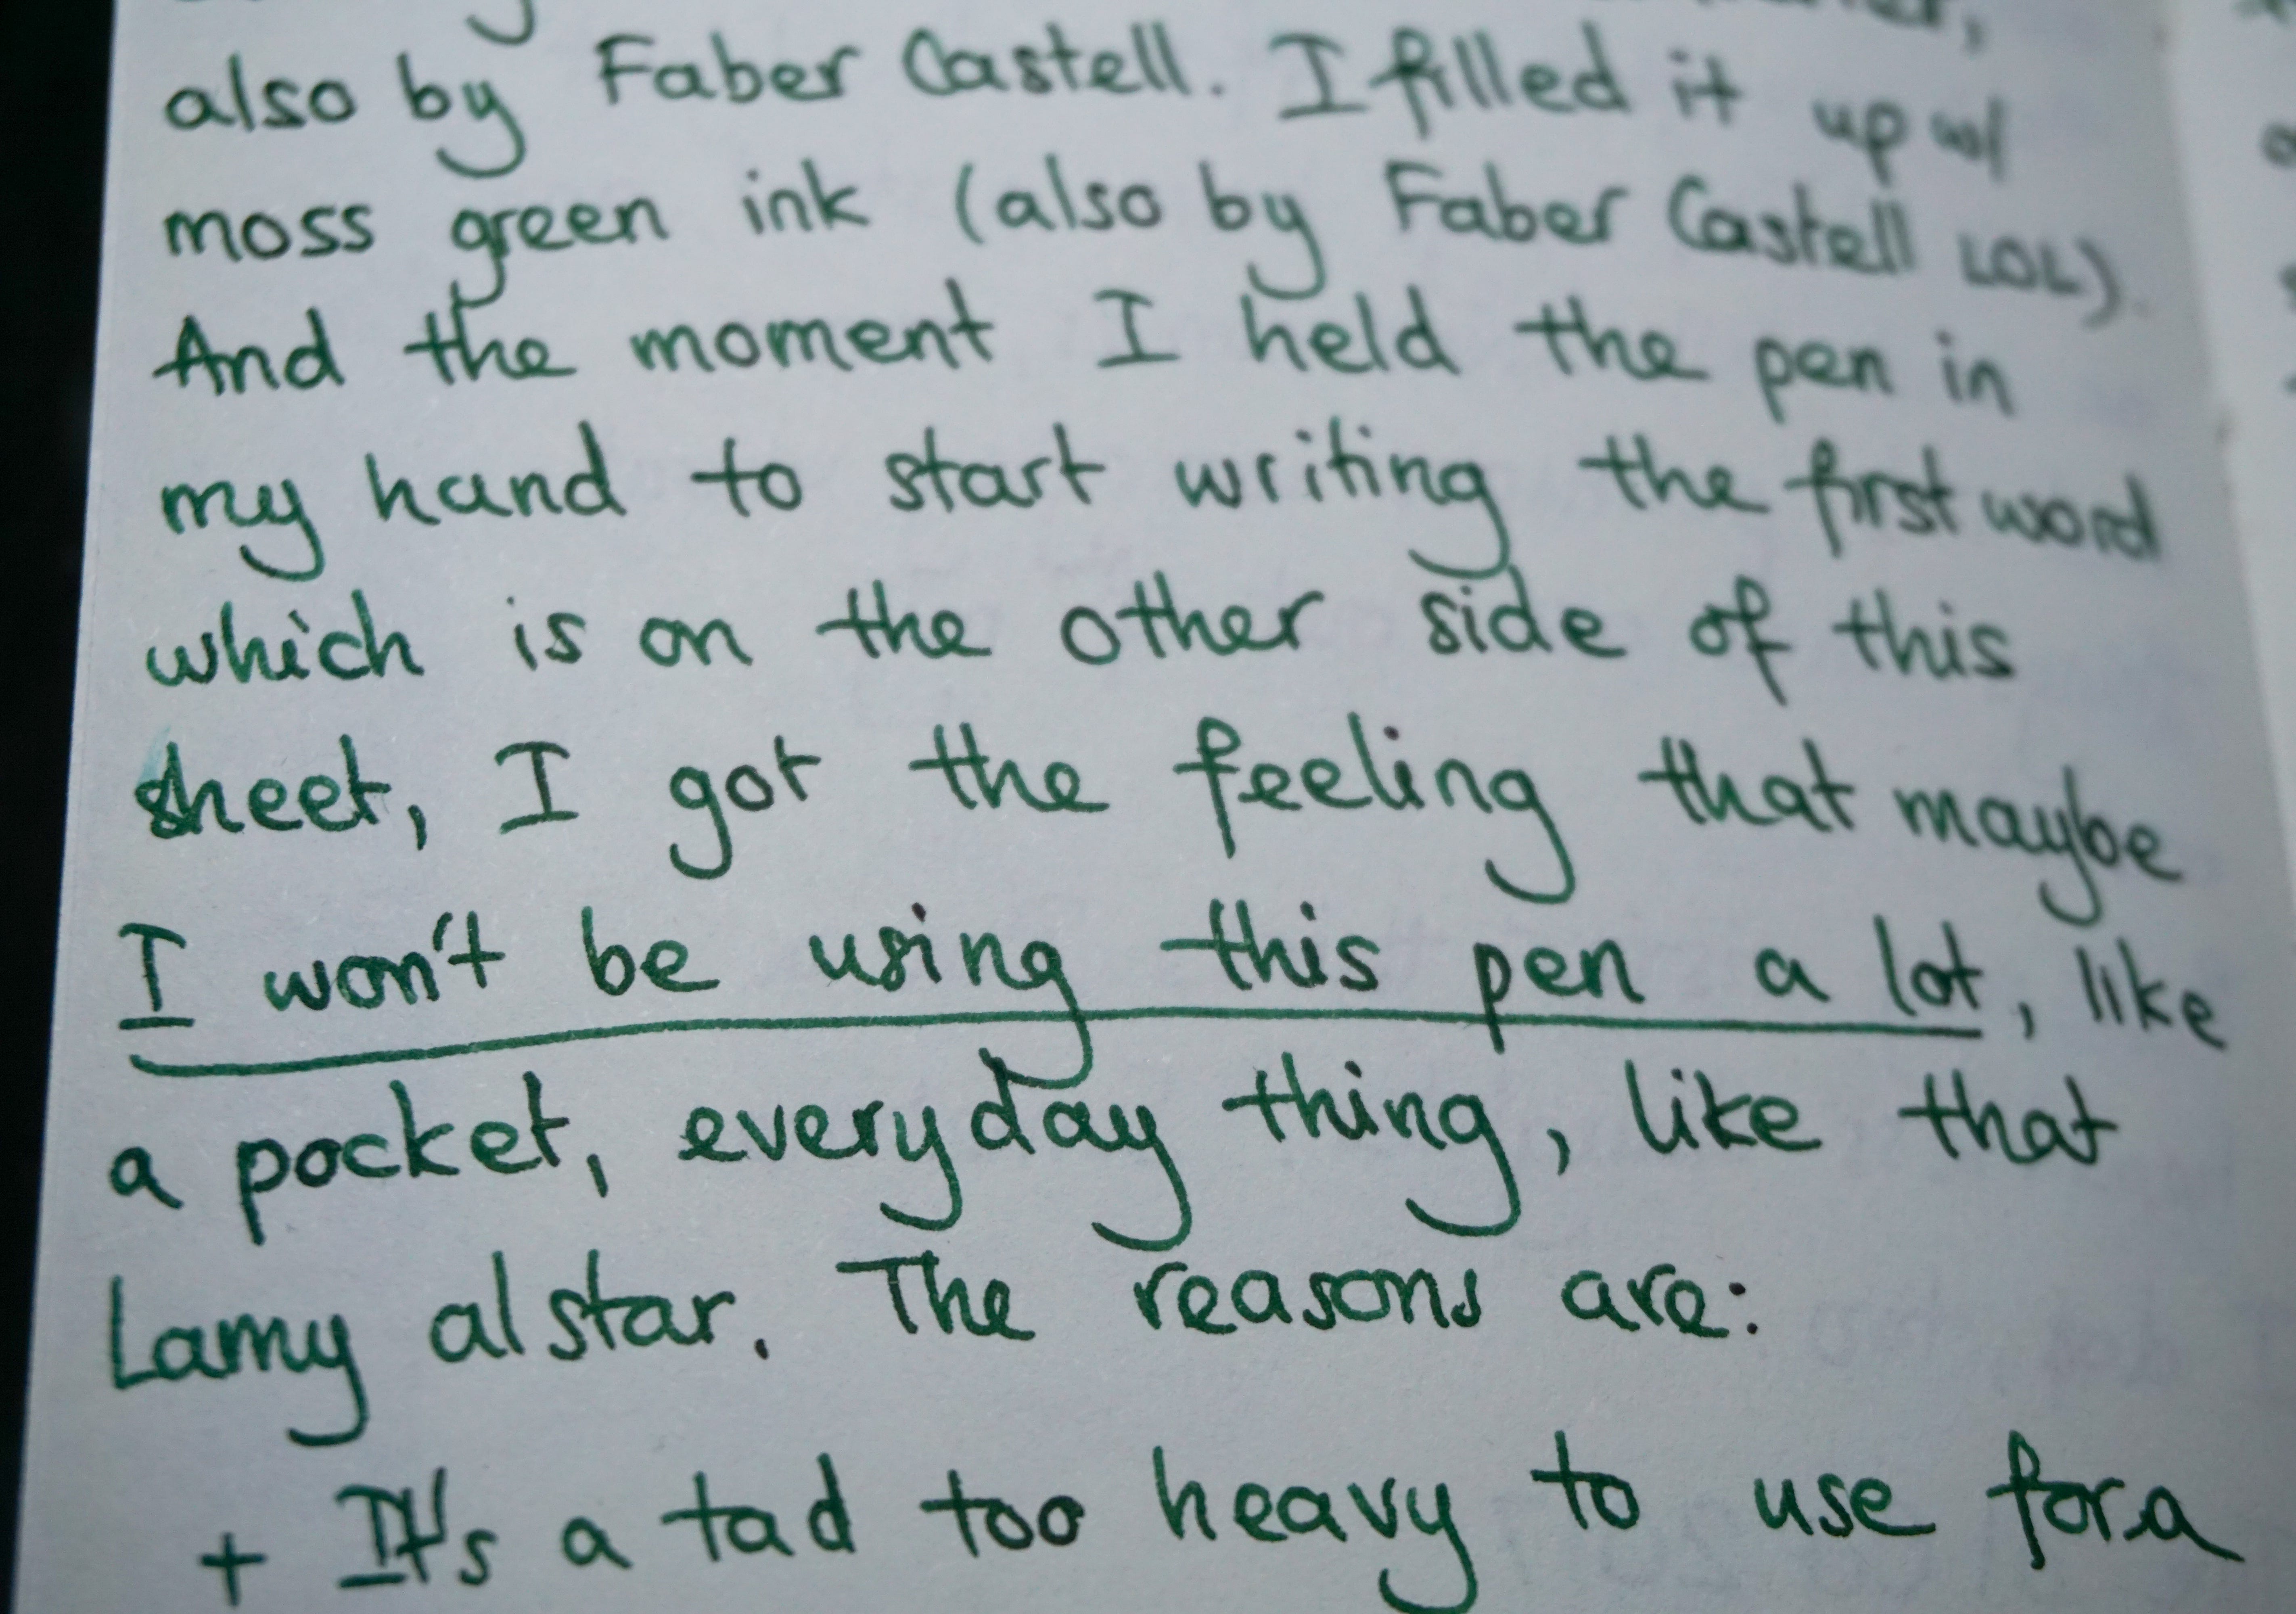 also by Faber Castell. I filled it up w/
moss green ink (also by Faber Castell LOL).
And the moment I held the pen in
my hand to start writing the first word
which is on the other side of this
sheet, I got the feeling that maybe
I won't be using this pen a lot, like
a pocket, everyday thing, like that
Lamy alstar. The reasons are:
+ It's a tad too heavy to use for a